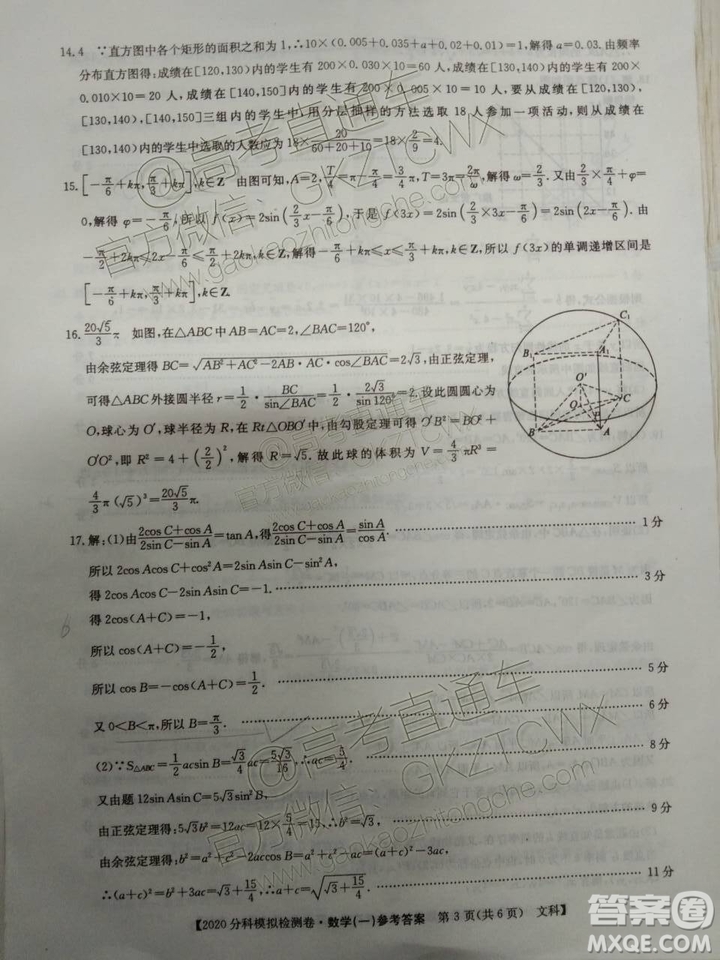 14.4 ∵直方图中各个矩形的面积之和为1,∴10×(0.005+0.035+a+0.02+0.01)=1,解得a=0.03.由频率
分布直方图得:成绩在[120,130)内的学生有200×0.030×10=60人,成绩在[130,140)内的学生有200×
0.010×10=20人,成绩在[140,150]内的学生有200×0.005×10=10人,故要从成绩在[120,130),
[130,140),[140,150]三组内的学生中,用分层抽样的方法选取18人参加一项活动,则从成绩在
[130,140)内的学生中选取的人数应为18×20/(60+20+10)=18×2/9=4.
15.[-π/6+kπ,π/3+kπ],k∈Z 由图可知,A=2,T/4=π-π/4=3/4π,T=3π=2π/ω,解得ω=2/3.又由2/3×π/4+φ=
0,解得φ=-π/6,所以f(x)=2sin(2/3x-π/6),于是f(3x)=2sin(2/3×3x-π/6)=2sin(2x-π/6).由
-π/2+2kπ≤2x-π/6≤π/2+2kπ,k∈Z,解得-π/6+kπ≤x≤π/3+kπ,k∈Z,所以f(3x)的单调递增区间是
[-π/6+kπ,π/3+kπ],k∈Z.
16.20√5/3π 如图,在△ABC中AB=AC=2,∠BAC=120°,
由余弦定理得BC=√(AB²+AC²-2AB·AC·cos∠BAC)=2√3,由正弦定理,
可得△ABC外接圆半径r=1/2·BC/sin∠BAC=1/2·2√3/sin120°=2.设此圆圆心为
O,球心为O′,球半径为R,在Rt△OBO′中,由勾股定理可得O′B²=BO²+
O′O²,即R²=4+(2/2)²,解得R=√5.故此球的体积为V=4/3πR³=
4/3π(√5)³=20√5/3π.
C₁
B₁
A₁
O′
O
C
B
A
17.解:(1)由(2cos C+cos A)/(2sin C-sin A)=tan A,得(2cos C+cos A)/(2sin C-sin A)=sin A/cos A. 1分
所以2cos Acos C+cos²A=2sin Asin C-sin²A,
得2cos Acos C-2sin Asin C=-1. 3分
得2cos(A+C)=-1,
所以cos(A+C)=-1/2,
所以cos B=-cos(A+C)=1/2. 5分
又0<B<π,所以B=π/3. 6分
(2)∵S△ABC=1/2acsin B=√3/4ac=5√3/16,∴ac=5/4. 8分
又由题12sin Asin C=5√3sin²B,
由正弦定理得:5√3b²=12ac=12×5/4=15,∴b²=√3, 9分
由余弦定理得:b²=a²+c²-2accos B=a²+c²-ac=(a+c)²-3ac,
∴(a+c)²=b²+3ac=√3+15/4,∴a+c=√(√3+15/4). 11分
【2020分科模拟检测卷·数学(一)参考答案 第3页(共6页) 文科】
@高考直通车
官方微信:GKZTCWX
www.gaokaozhitongche.com
@高考直通车
官方微信:GKZTCWX
www.gaokaozhitongche.com
答案圈
MXQE.COM